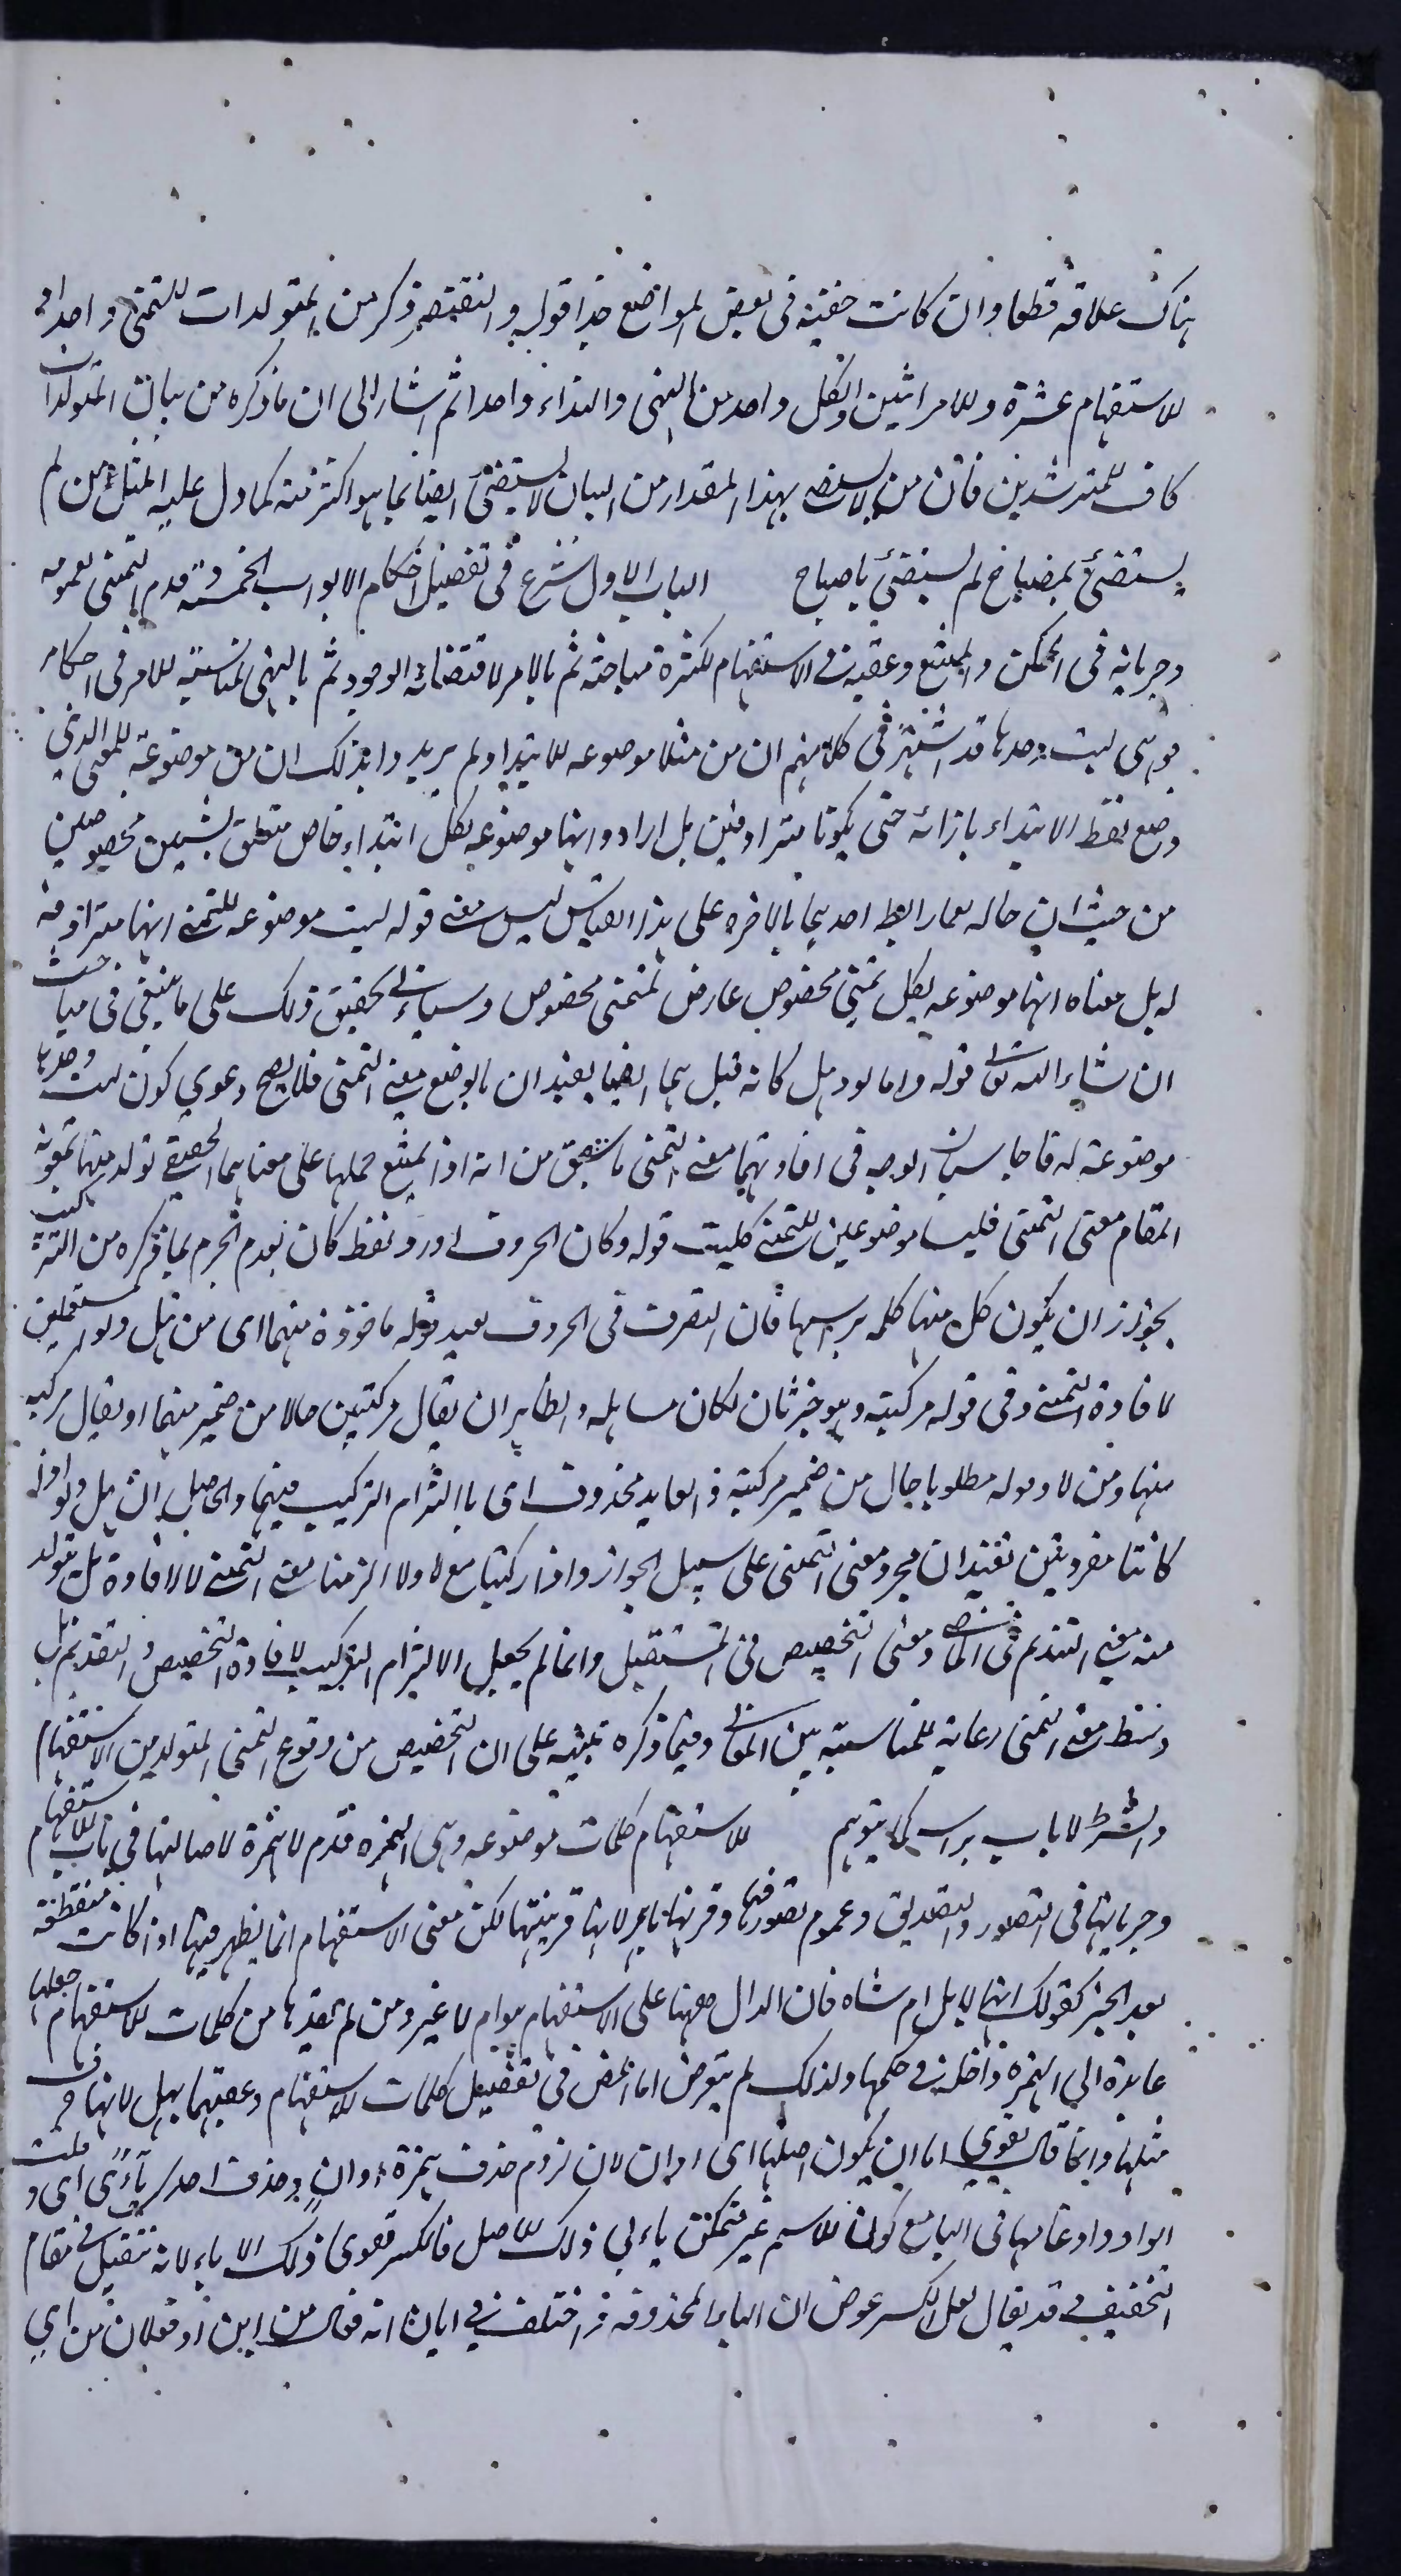 هناك علاقة قطعا وان كانت خفية فى بعض المواضع خذا قوله والنقيضه ذكر من المتولدات للتمنى واحدا و
للاستفهام عشرة وللامر اثنين ولكل واحد من النهى والنداء واحدا ثم اشار الى ان ما ذكره من بيان المتولدات
كاف للمترشدين فان من لا يستضئ بهذا المقدار من البيان لا يستضئ ايضا بما هو اكثر منه كما دل عليه المثل من لم
يستضئ بمصباح لم يستضئ باصباح الباب الاول شرع فى تفصيل احكام الابواب الخمسة وقدم التمنى لعمومه
وجريانه فى الممكن والممتنع وعقبه فى الاستفهام لكثرة مباحثه ثم بالامر لاقتضائه الوجود ثم بالنهى لمناسبته للامر فى احكام
قوله هى ليت وحدها قد اشتهر فى كلامهم ان من مثلا موضوعه للابتداء ولم يريدوا بذلك ان من موضوعة للمعنى الذى
وضع لفظ الابتداء بازائه حتى يكونا مترادفين بل ارادوا انها موضوعه لكل ابتداء خاص متعلق بشيئين مخصوصين
من حيث ان حاله لهما رابط احديهما بالاخره على هذا القياس ليس معنى قوله ليت موضوعه للتمنى انها مترادفة
له بل معناه انها موضوعه لكل تمنى مخصوص عارض لمتمنى مخصوص وسياتى تحقيق ذلك على ما ينبغى فى مباحث
ان شاء الله تعالى قوله واما لو وهل كانه قيل هما ايضا يفيدان بالوضع معنى التمنى فلا يصح دعوى كون ليت وحدها
موضوعة له فاجاب بان الوجه فى افادتهما معنى التمنى ما سبق من انه اذا امتنع حملها على معناهما الحقيقى تولد منهما بمعونة
المقام معنى التمنى فليسا موضوعين للتمنى كليت قوله وكان الحروف اورد لفظ كان لعدم الجزم بما ذكره من التركيب
يجوز ان يكون كل منها كلمه براسها فان التصرف فى الحروف بعيد قوله ماخوذة منهما اى من هل ولو المستعملين
لافادة التمنى وفى قوله مركبته وهو خبر ثان لكان مساهلة والظاهر ان يقال مركبتين حالا من ضمير منهما او يقال مركبه
منها ومن لا وقوله مطلوبا حال من ضمير مركبة والعايد محذوف اى بالتزام التركيب فيهما والحاصل ان هل ولو اذا
كانتا مفردتين تفيدان مجرد معنى التمنى على سبيل الجواز واذا ركبتا مع لا ولا الزمنا معنى التمنى لا لافادة بل ليتولد
منه معنى التنديم فى الماضى ومعنى التخصيص فى المستقبل وانما لم يجعل الالتزام التركيب لافادة التخصيص والتنديم بل
وسط معنى التمنى رعاية للمناسبة بين المعانى وفيما ذكره تنبيه على ان التخصيص من فروع التمنى المتولد من الاستفهام
والشرط لا باب براسه كما يتوهم للاستفهام كلمات موضوعه وهى الهمزه قدم الهمزة لاصالتها فى باب الاستفهام
وجريانها فى التصور والتصديق وعموم تصورها فيهما وقرنها بام لانها قرينتها لكن معنى الاستفهام انما يظهر فيها اذا كانت منقطعة
بعد الخبر كقولك انها لابل ام شاه فان الدال ههنا على الاستفهام هو ام لا غير ومن لم يعدها من كلمات الاستفهام جعلها
عايدة الى الهمزه داخلة فى حكمها ولذلك لم يتعرض لها المص فى تفصيل كلمات الاستفهام وعقبهما بهل لانها حرف
مثلها وانما قال يقوى اما ان يكون اصلها اى اوان لان لزوم حذف همزة اوان وحذف احدى يائى اى و قلب
الواو وادغامها فى اليا مع كون الاسم غير متمكن يابى ذلك للاصل فالكسر يقوى ذلك الاباء لانه ثقيل فى مقام
التخفيف قد يقال لعل الكسر عوض ان الياء المحذوفه واختلف فى ايان انه فعال من اين او فعلان من اى